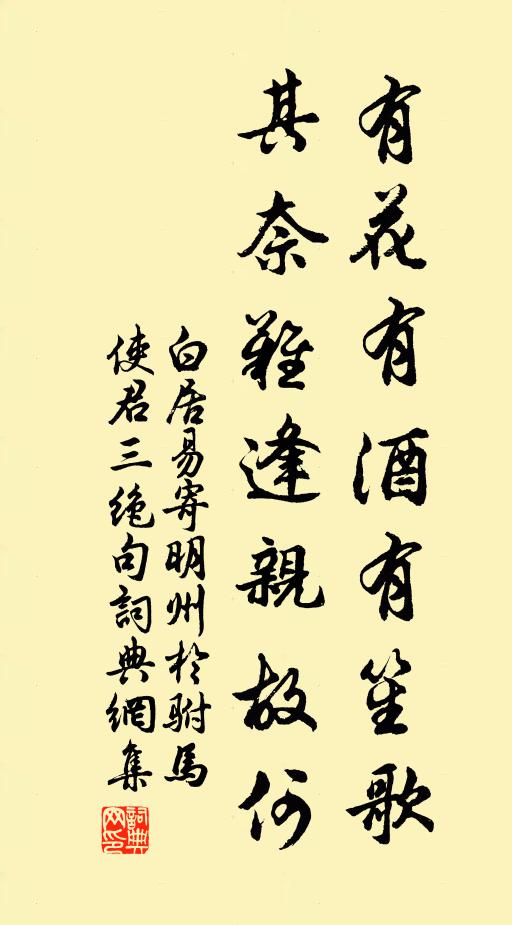 有花有酒有笙歌
其奈難逢親故何
白居易寄明州於駙馬
使君三絕句詞典網集
詞典
网印